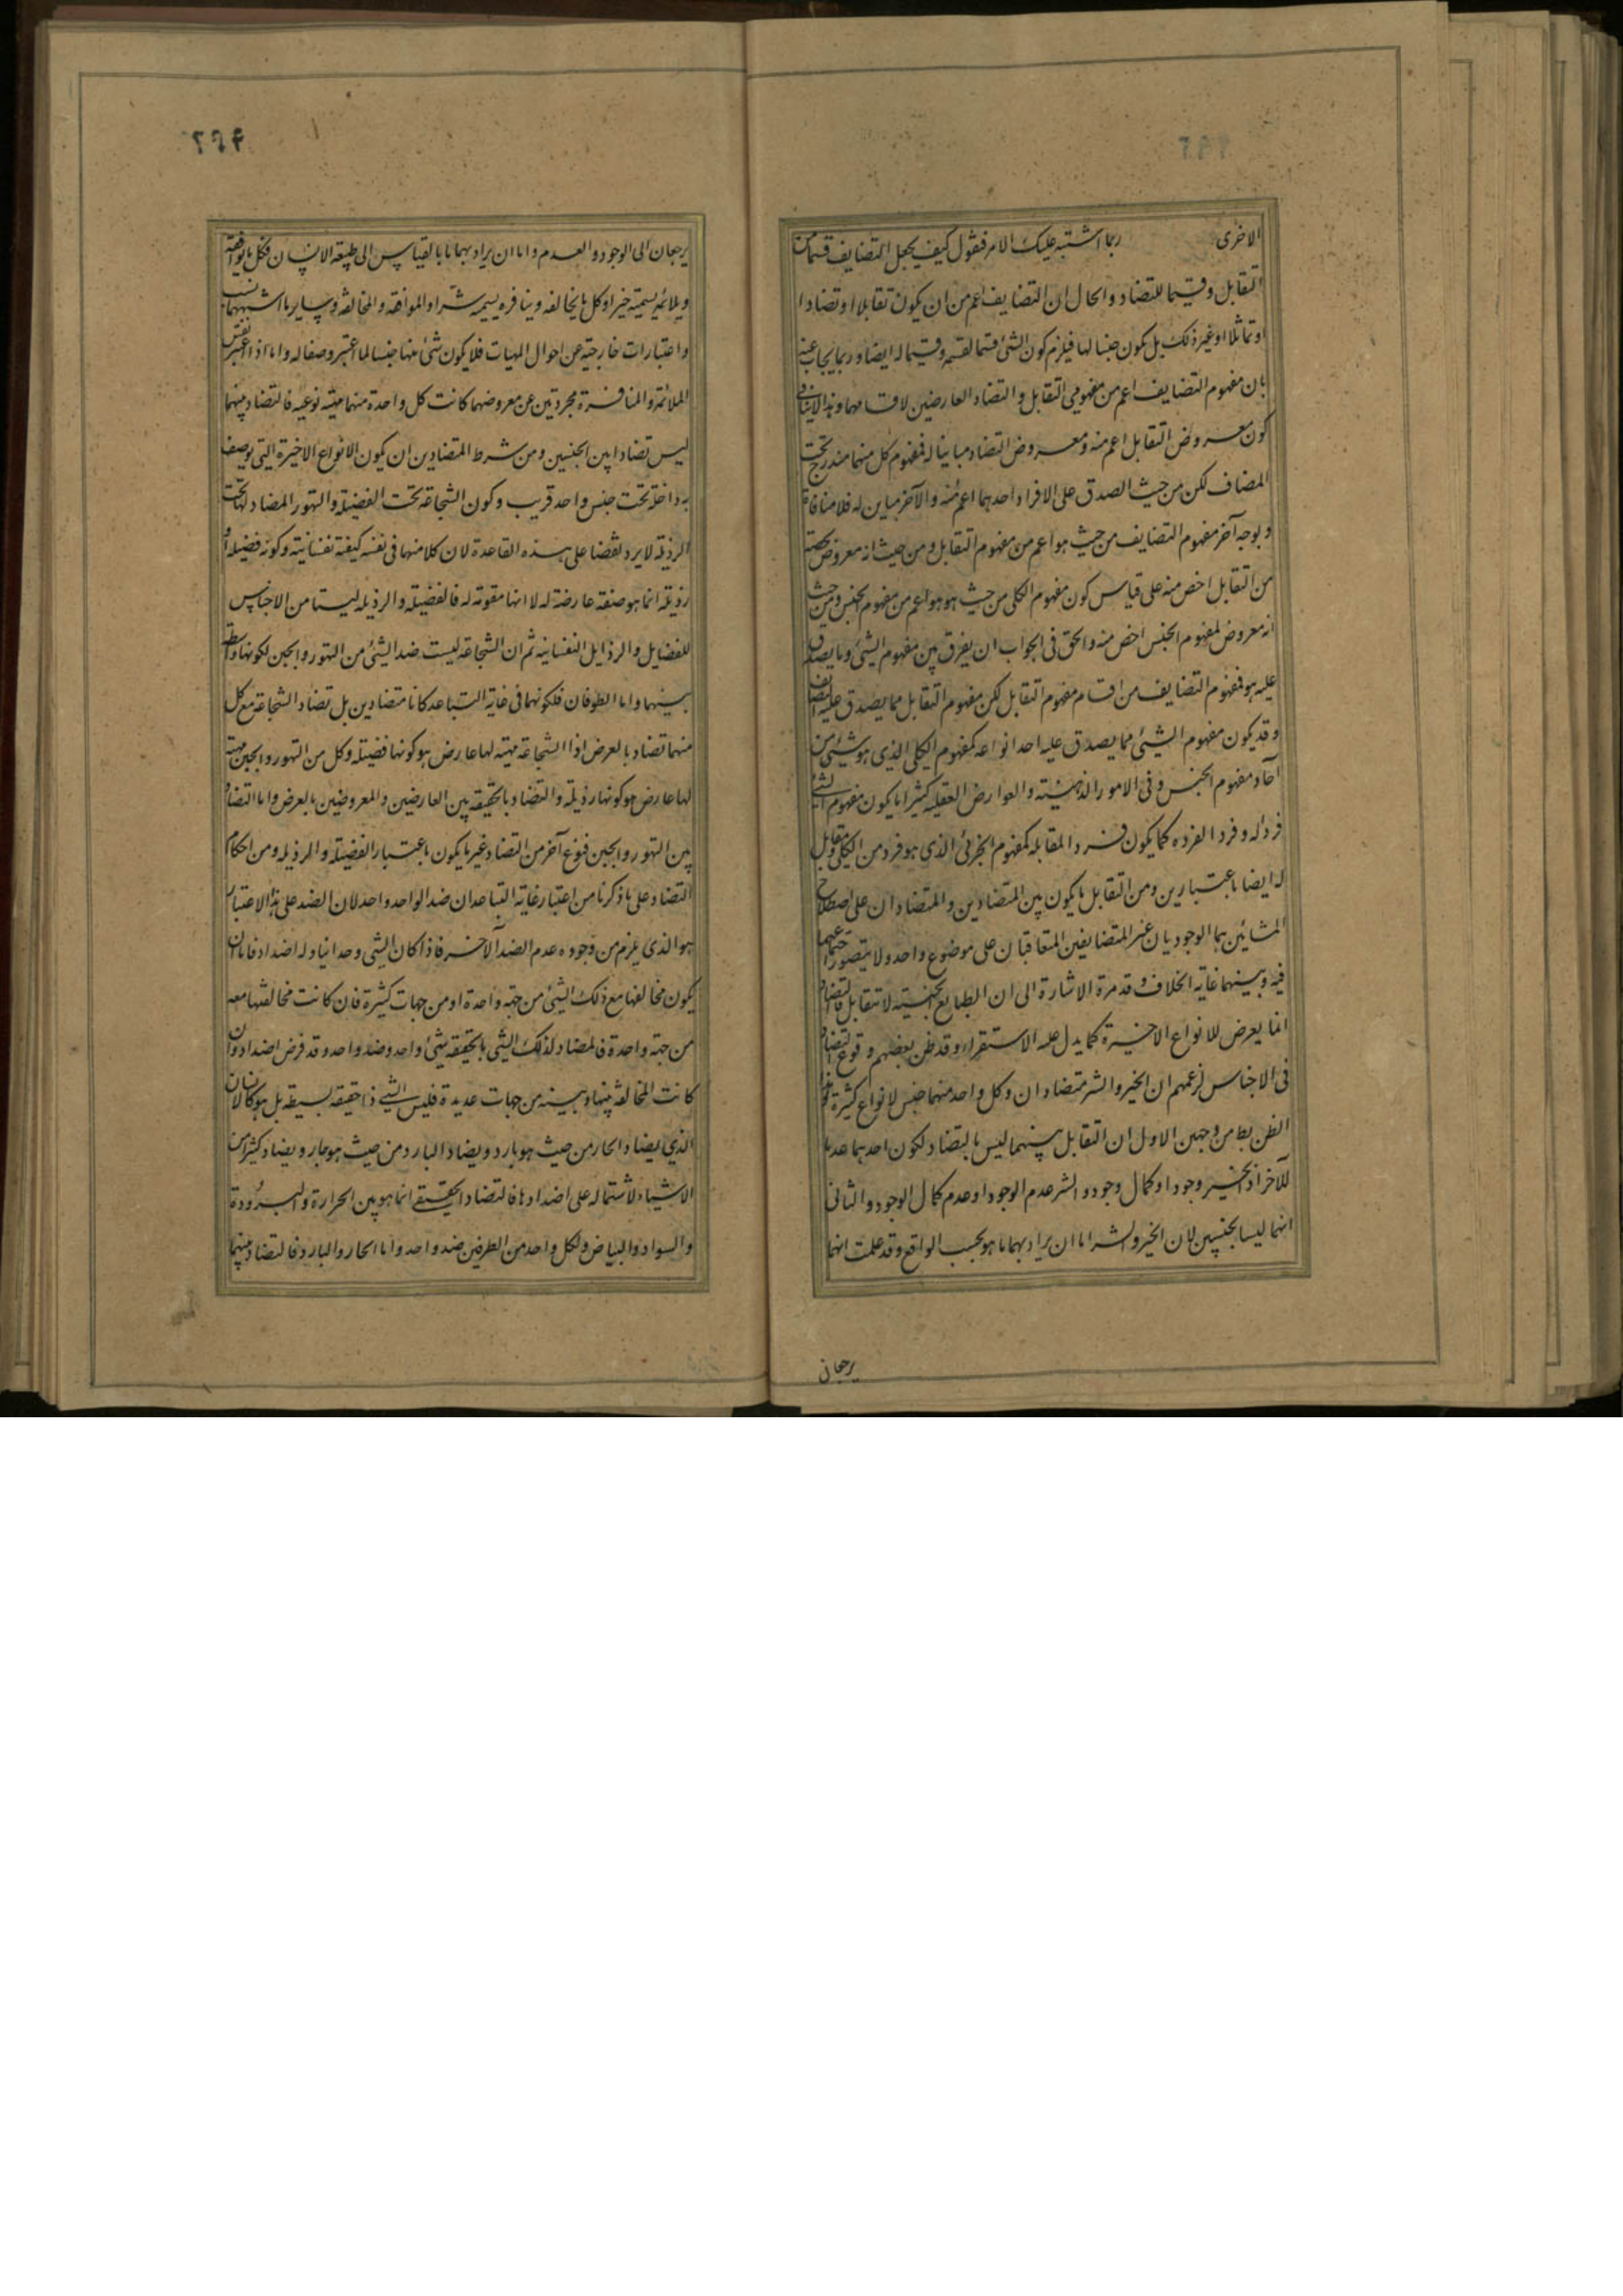 الاخرى ربما اشتبه عليك الامر فتقول كيف يجعل التضايف قسما من
التقابل وقسيما للتضاد والحال ان التضايف اعم من ان يكون تقابلا او تضادا
او تماثلا او غير ذلك بل يكون جنسا لها فيلزم كون الشئ قسما لقسيمه وقسيما له ايضا وربما يجاب عنه
بان مفهوم التضايف اعم من مفهومى التقابل و التضاد العارضين لاقسامهما وهذا لا ينافى
كون معروض التقابل اعم منه ومعروض التضاد مباينا له فمفهوم كل منهما مندرج تحت
المضاف لكن من حيث الصدق على الافراد احدهما اعم منه والآخر مباين له فلا منافاة
و بوجه آخر مفهوم التضايف من حيث هو اعم من مفهوم التقابل ومن حيث انه معروض لحصة
من التقابل اخص منه على قياس كون مفهوم الكلى من حيث هو هو اعم من مفهوم الجنس ومن حيث
انه معروض لمفهوم الجنس اخص منه والحق فى الجواب ان يفرق بين مفهوم الشئ وما يصدق
عليه هو فمفهوم التضايف من اقسام مفهوم التقابل لكن مفهوم التقابل مما يصدق عليه المضاف
وقد يكون مفهوم الشئ مما يصدق عليه احد انواعه كمفهوم الكلى الذى هو شئ من
آحاد مفهوم الجنس وفى الامور الذهنية والعوارض العقلية كثيرا ما يكون مفهوم الشئ
فردا له و فردا لفرده كما يكون فردا لمقابله كمفهوم الجزئى الذى هو فرد من الكلى ومقابل
له ايضا باعتبارين ومن التقابل ما يكون بين المتضادين والمتضادان على اصطلاح
المشائين هما الوجوديان غير المتضايفين المتعاقبان على موضوع واحد ولا يتصور اجتماعهما
فيه وبينهما غاية الخلاف وقد مرة الاشارة الى ان الطبايع الجنسية لا تتقابل فالتضاد
انما يعرض للانواع الاخيرة كما يدل عليه الاستقراء وقد ظن بعضهم وقوع التضاد
فى الاجناس لزعمهم ان الخير والشر متضادان وكل واحد منهما جنس لانواع كثيرة وهذا
الظن بط من وجهين الاول ان التقابل بينهما ليس بالتضاد لكون احدهما عدما
للآخر اذ الخير وجود او كمال وجود والشر عدم الوجود او عدم كمال الوجود والثانى
انهما ليسا بجنسين لان الخير والشر اما ان يراد بهما ما هو بحسب الواقع وقد علمت انهما
يرجعان
۲۹۴
يرجعان الى الوجود والعدم واما ان يراد بهما ما بالقياس الى طبيعة الانسان فكل ما يوافقه
ويلائمه يسميه خيرا وكل ما يخالفه وينافره يسميه شرا والموافقة والمخالفة وساير ما اشبههما نسب
واعتبارات خارجية عن احوال المهيات فلا يكون شئ منها جنسا لما اعتبر وصفا له واما اذا اعتبر نفس
الملائمة والمنافرة مجردتين عن معروضهما كانت كل واحدة منهما مهية نوعية فالتضاد بينهما
ليس تضادا بين الجنسين ومن شرط المتضادين ان يكون الانواع الاخيرة التى توصف
به داخلة تحت جنس واحد قريب وكون الشجاعة تحت الفضيلة والتهور المضاد لها تحت
الرذيلة لا يرد نقضا على هذه القاعدة لان كلا منها فى نفسه كيفية نفسانية وكونه فضيلة او
رذيلة انما هو صفة عارضة له لا انها مقومة له فالفضيلة والرذيلة ليستا من الاجناس
للفضايل والرذايل النفسانية ثم ان الشجاعة ليست ضد الشئ من التهور والجبن لكونها واسطة
بينهما واما الطرفان فلكونهما فى غاية التباعد كانا متضادين بل تضاد الشجاعة مع كل
منهما تضاد بالعرض اذ الشجاعة مهية لها عارض هو كونها فضيلة وكل من التهور والجبن مهية
لها عارض هو كونها رذيلة والتضاد بالحقيقة بين العارضين والمعروضين بالعرض واما التضاد
بين التهور والجبن فنوع آخر من التضاد غير ما يكون باعتبار الفضيلة والرذيلة ومن احكام
التضاد على ما ذكرنا من اعتبار غاية التباعد ان ضد الواحد واحد لان الضد على هذا الاعتبار
هو الذى يلزم من وجوده عدم الضد الآخر فاذا كان الشئ وحدانيا وله اضداد فاما ان
يكون مخالفتها مع ذلك الشئ من جهة واحدة او من جهات كثيرة فان كانت مخالفتها معه
من جهة واحدة فالمضاد لذلك الشئ بالحقيقة شئ واحد وضد واحد وقد فرض اضدادا وان
كانت المخالفة بينها وبينه من جهات عديدة فليس الشئ ذا حقيقة بسيطة بل هو كالانسان
الذى يضاد الحار من حيث هو بارد ويضاد البارد من حيث هو حار ويضاد كثيرا من
الاشياء لاشتماله على اضدادها فالتضاد الحقيقى انما هو بين الحرارة والبرودة
والسواد والبياض ولكل واحد من الطرفين ضد واحد واما الحار والبارد فالتضاد بينهما